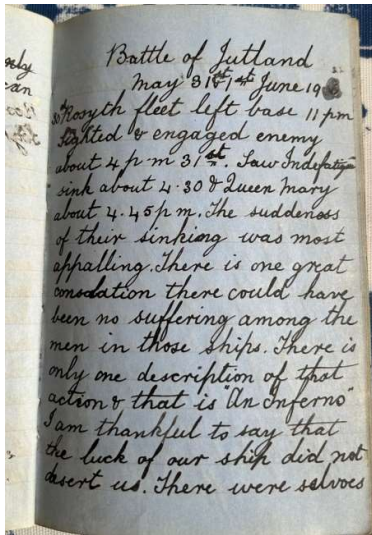 only
can
Battle of Jutland
May 31st 1st June 19
30th Rosyth fleet left base 11 pm
Sighted & engaged enemy
about 4 p.m 31st. Saw Indefatig
sink about 4.30 & Queen Mary
about 4.45 p m. The suddeness
of their sinking was most
appalling. There is one great
consolation there could have
been no suffering among the
men in those ships. There is
only one description of that
action & that is An Inferno"
I am thankful to say that
the luck of our ship did not
desert us. There were salvoes